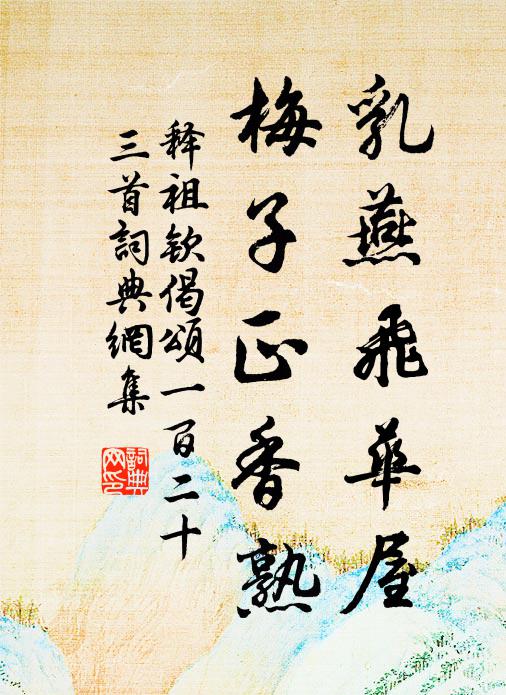 乳燕飛華屋
梅子正香熟
释祖欽偈頌一百二十
三首詞典網集
詞典
网印